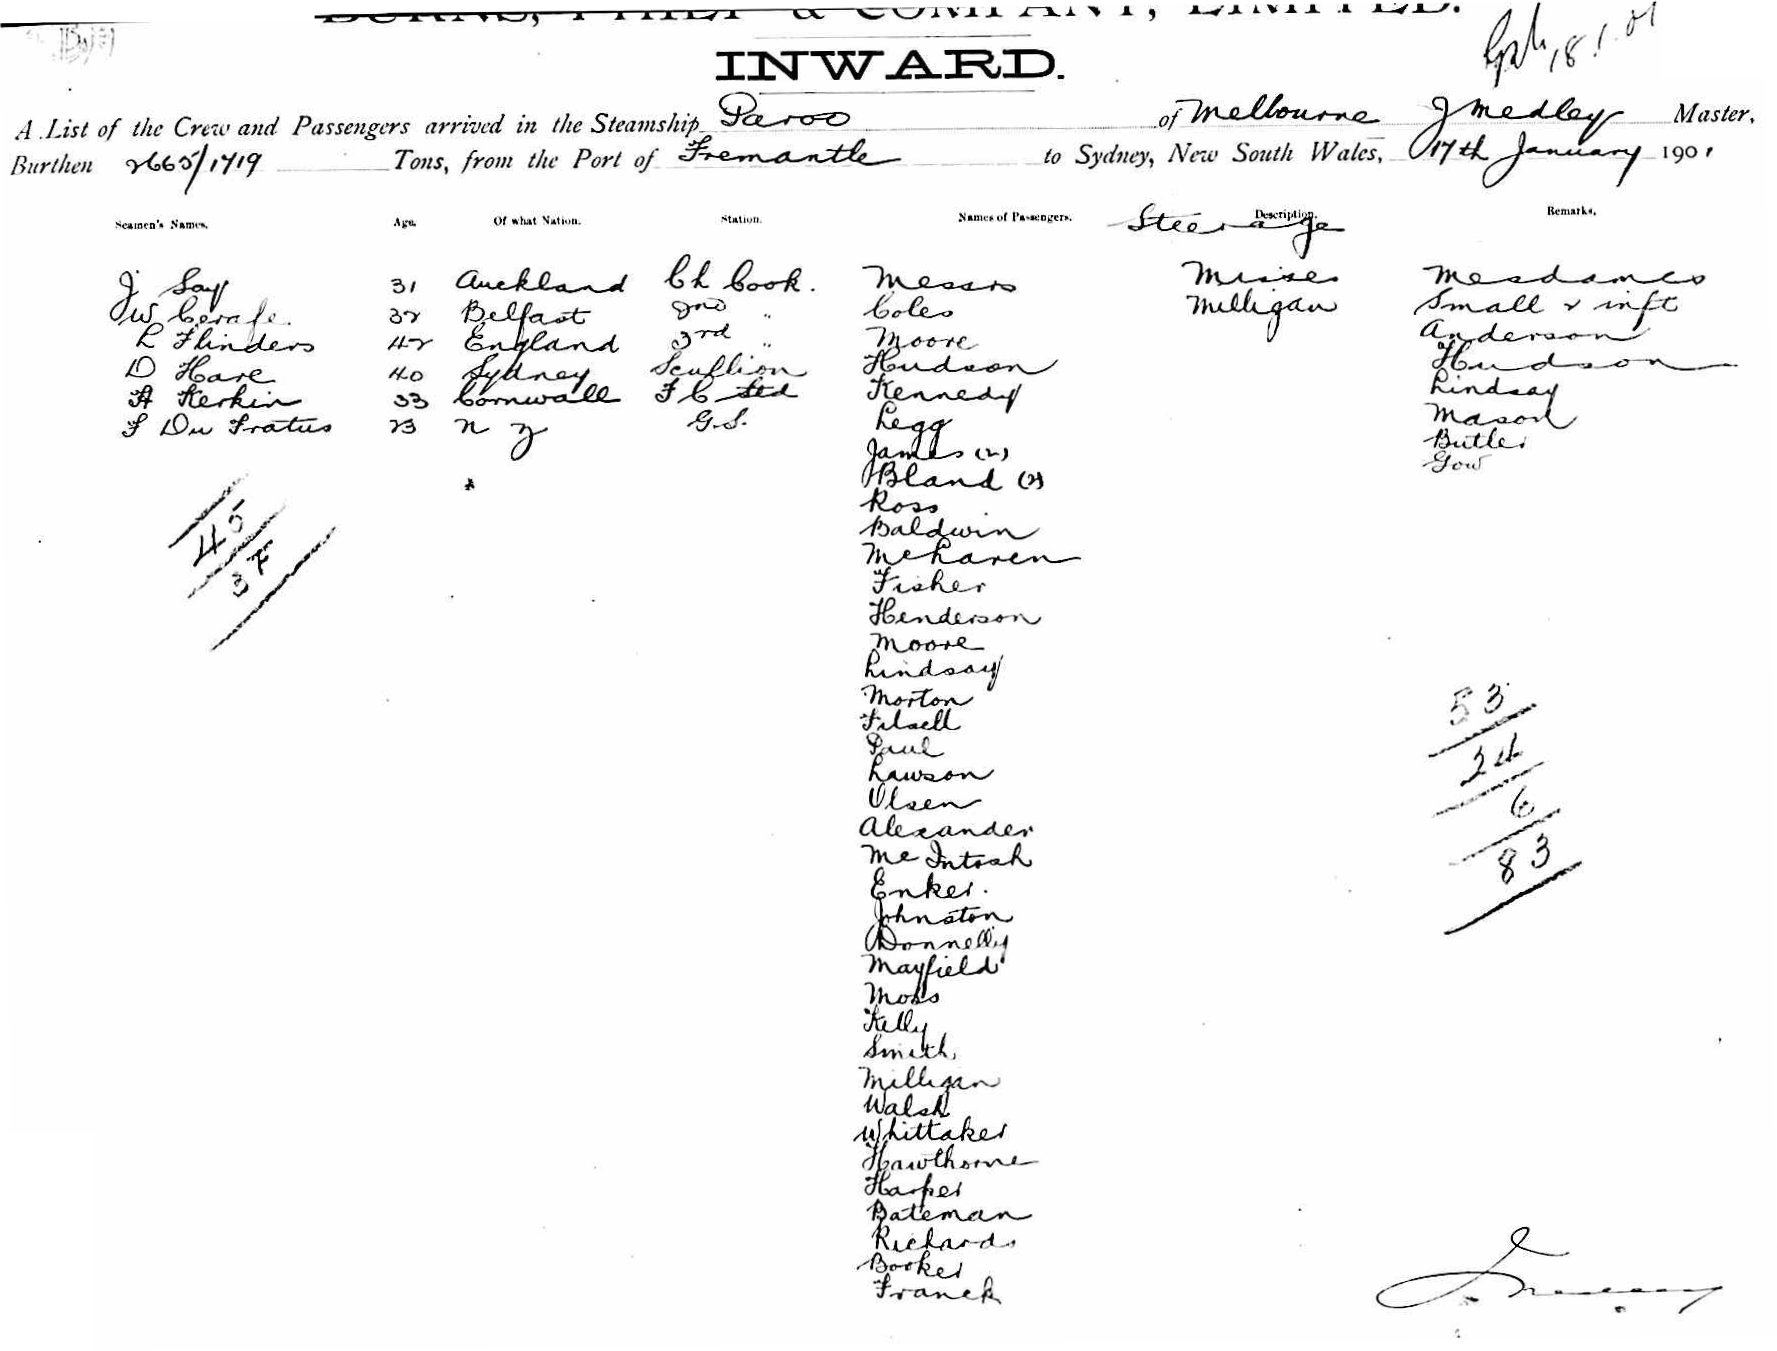 BURNS, PHILP & COMPANY, LIMITED.
INWARD.
18.1.01
A List of the Crew and Passengers arrived in the Steamship Paroo of Melbourne J Medley Master,
Burthen 2665/1719 Tons, from the Port of Fremantle to Sydney, New South Wales, 17th January 1901
Seamen's Names. Age. Of what Nation. Station. Names of Passengers. Description. Remarks.
Steerage
J Say 31 Auckland Ch Cook. Messrs Misses Mesdames
W 32 Belfast 2nd " Coles Milligan Small & inft
L Flinders 42 England 3rd " Moore Anderson
D Hare 40 Sydney Scullion Hudson Hudson
A Kerkin 33 Cornwall F C Std Kennedy Lindsay
F Du Fratus 23 N Z G.S. Legg Mason
James (2) Butler
Bland (2) Gow
Ross
Baldwin
McLaren
Fisher
Henderson
Moore
Lindsay
Morton
Filsell
Paul
Lawson
Olsen
Alexander
McIntosh
Enker.
Johnston
Donnelly
Mayfield
Moss
Kelly
Smith,
Milligan
Walsh
Whittaker
Hawthorne
Harper
Bateman
Richards
Booker
Franck
45
37
53
24
6
83